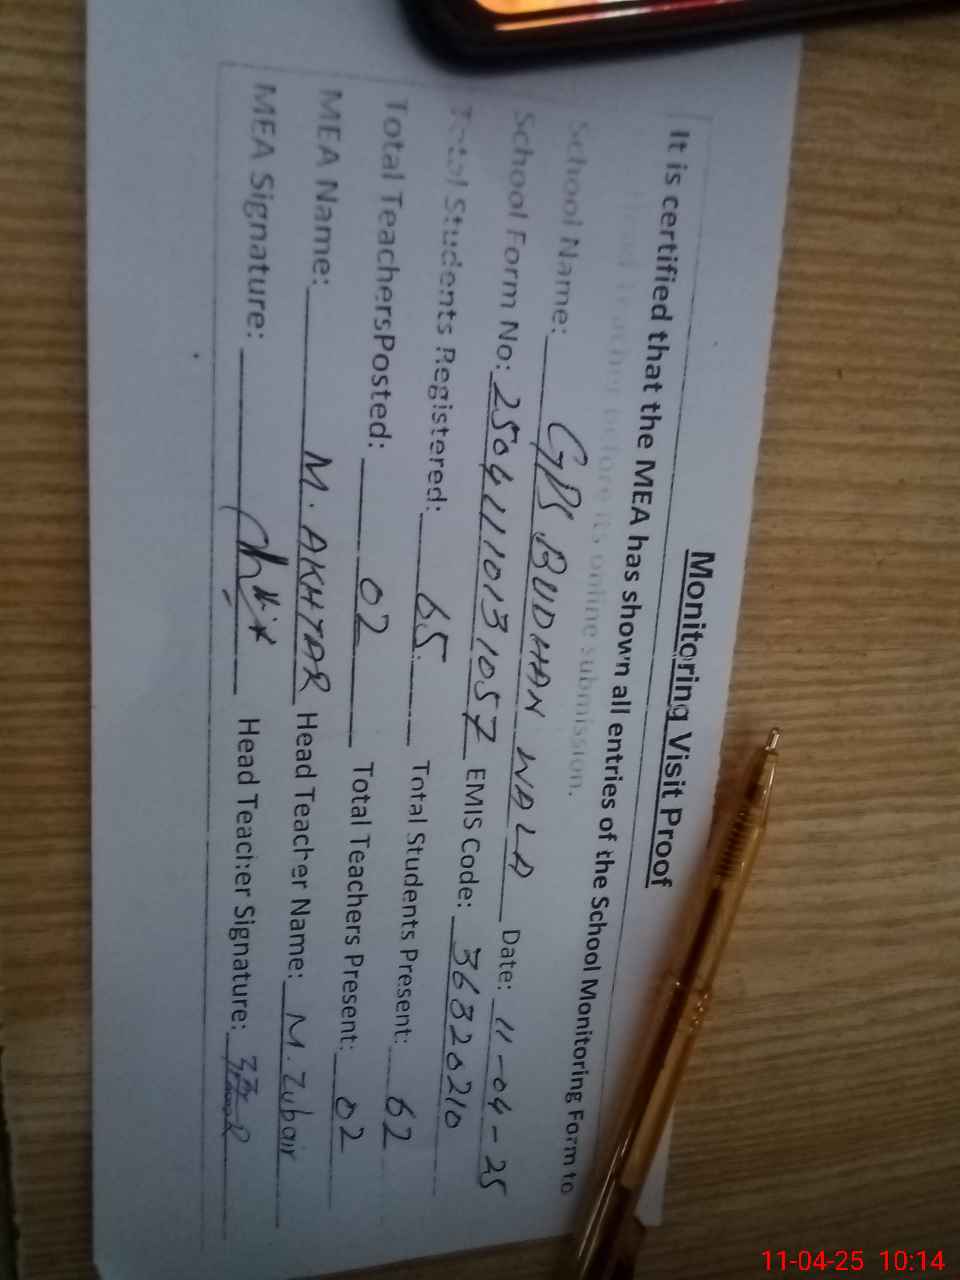 Monitoring Visit Proof
It is certified that the MEA has shown all entries of the School Monitoring Form to
Head Teacher before its online submission.
School Name: GPS BUDHAN WALA Date: 11-04-25
School Form No: 25041110131057 EMIS Code: 36820210
Total Students Registered: 65 Total Students Present: 62
Total TeachersPosted: 02 Total Teachers Present: 02
MEA Name: M. AKHTAR Head Teacher Name: M. Zubair
MEA Signature: Head Teacher Signature:
11-04-25 10:14